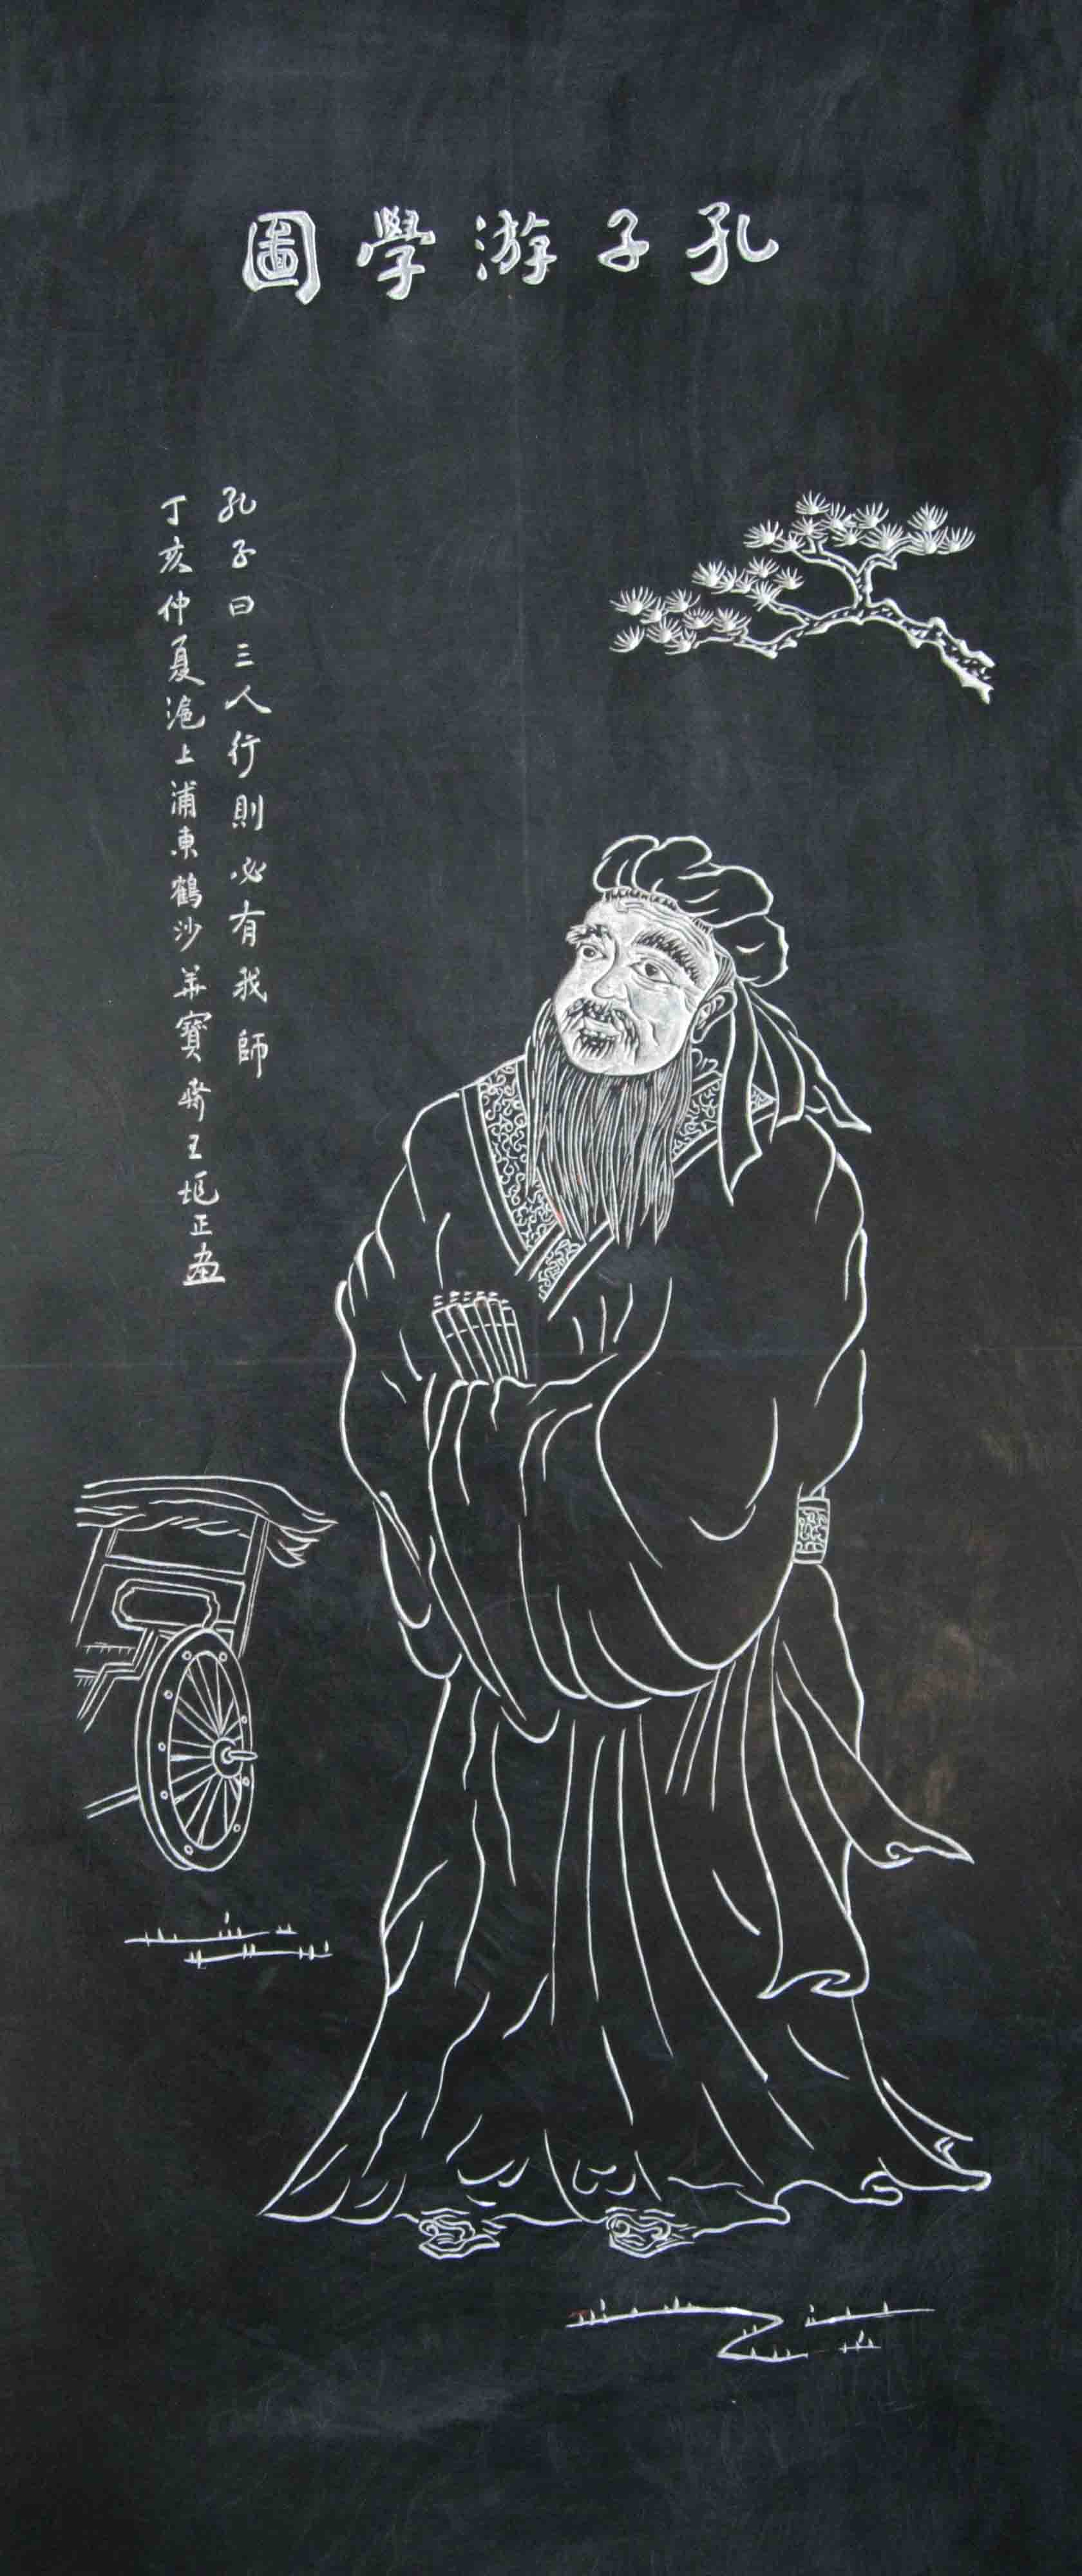 孔子游學圖
孔子曰三人行則必有我師
丁亥仲夏滬上浦東鶴沙華寶齋王垣正畫